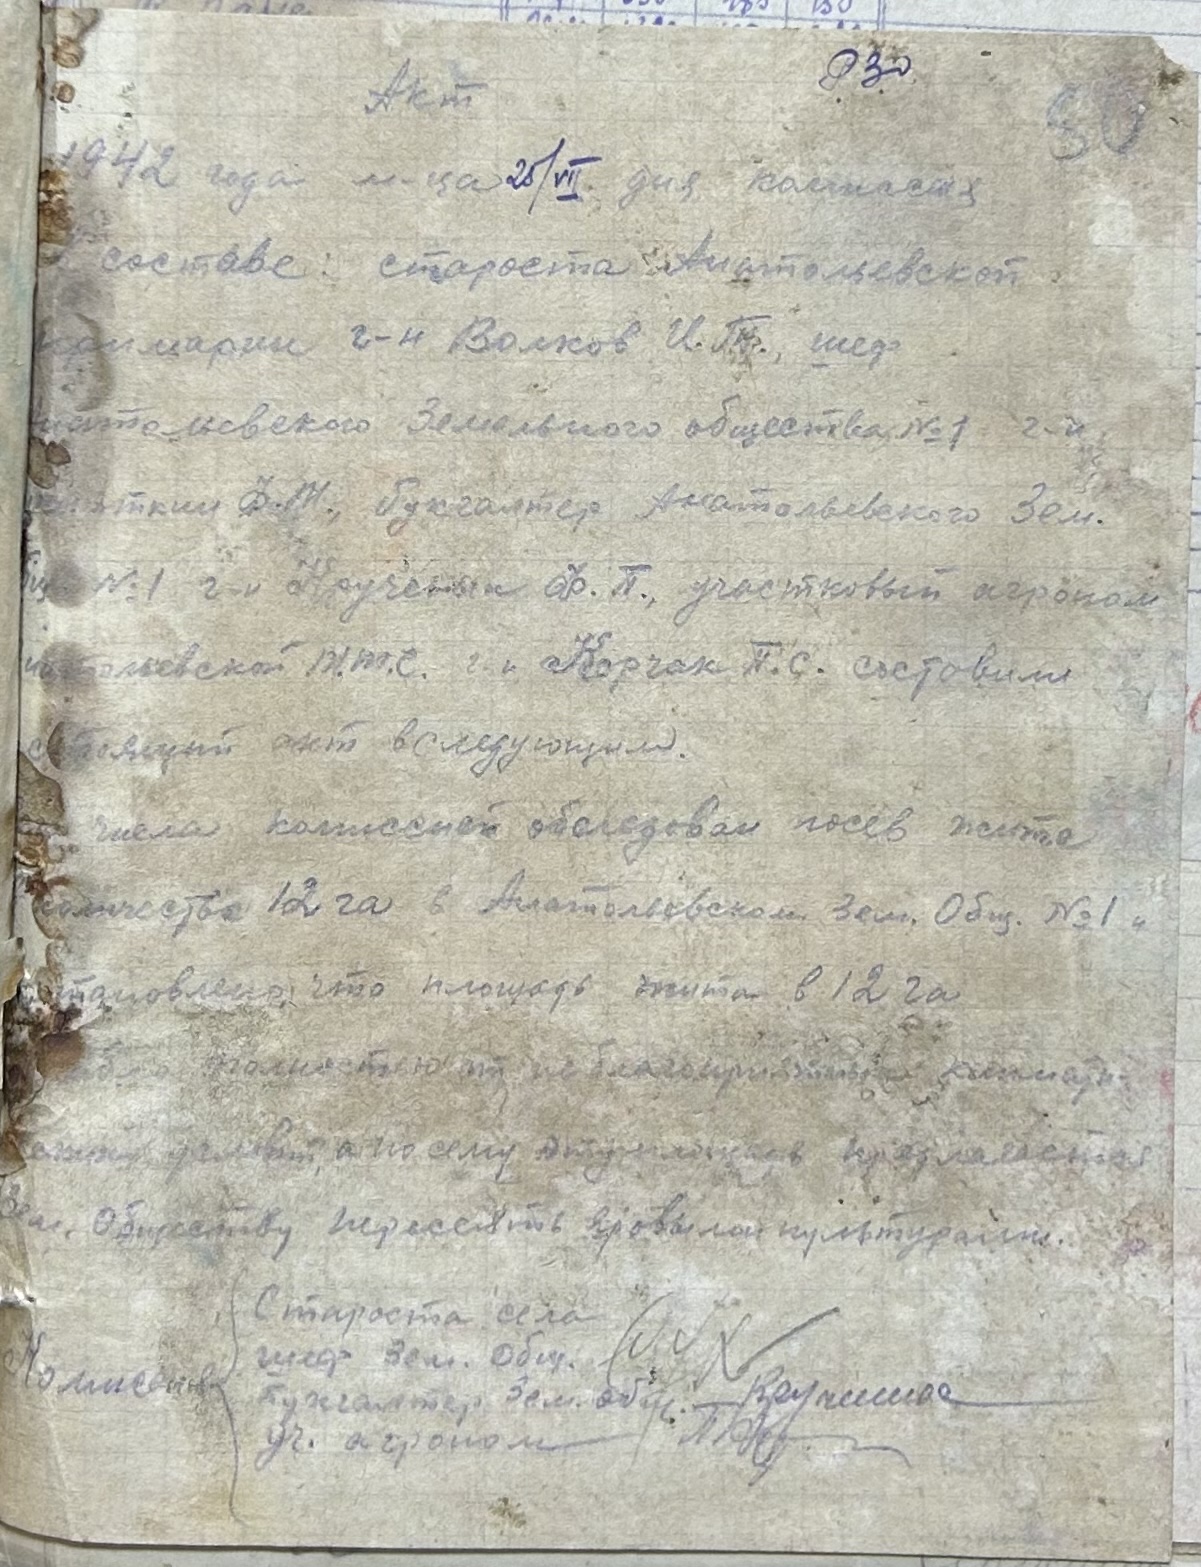 30
Акт
1942 года м-ца 25/VII дня комиссия
составе: староста Анатольевской
примарии г-н Волков И. Т., шеф
натольевского Земельного общества №1 г-н
Ф. М., бухгалтер Анатольевского Зем.
№1 г-н Крученюк Ф. П., участковый агроном
натольевской М.Т.С. г-н Корчак П. С. составили
акт в следующим.
числа комиссией обследован посев жита
количестве 12 га в Анатольевском Зем. Общ. №1 и
установлено, что площадь жита в 12 га
полностью неблагоприятных климати-
условий, а посему эту площадь предлагается
Зем. Обществу пересеять яровыми культурами.
Староста села
шеф Зем. Общ.
Комиссия
бухгалтер Зем. общ.
уч. агроном